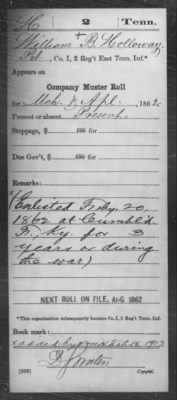 H 2 Tenn.
William B. Holloway
Pvt, Co. I, 2 Reg't East Tenn. Inf.*
Appears on
Company Muster Roll
for Mch & Apl, 1862.
Present or absent Present
Stoppage, $ 100 for
Due Gov't, $ 100 for
Remarks:
(Enlisted Feby. 20,
1862 at Cumbl'd
F. Ky. for 3
years or during
the war)
NEXT ROLL ON FILE, AUG 1862
*This organization subsequently became Co. I, 2 Reg't Tenn. Inf.
Book mark:
Copyist.